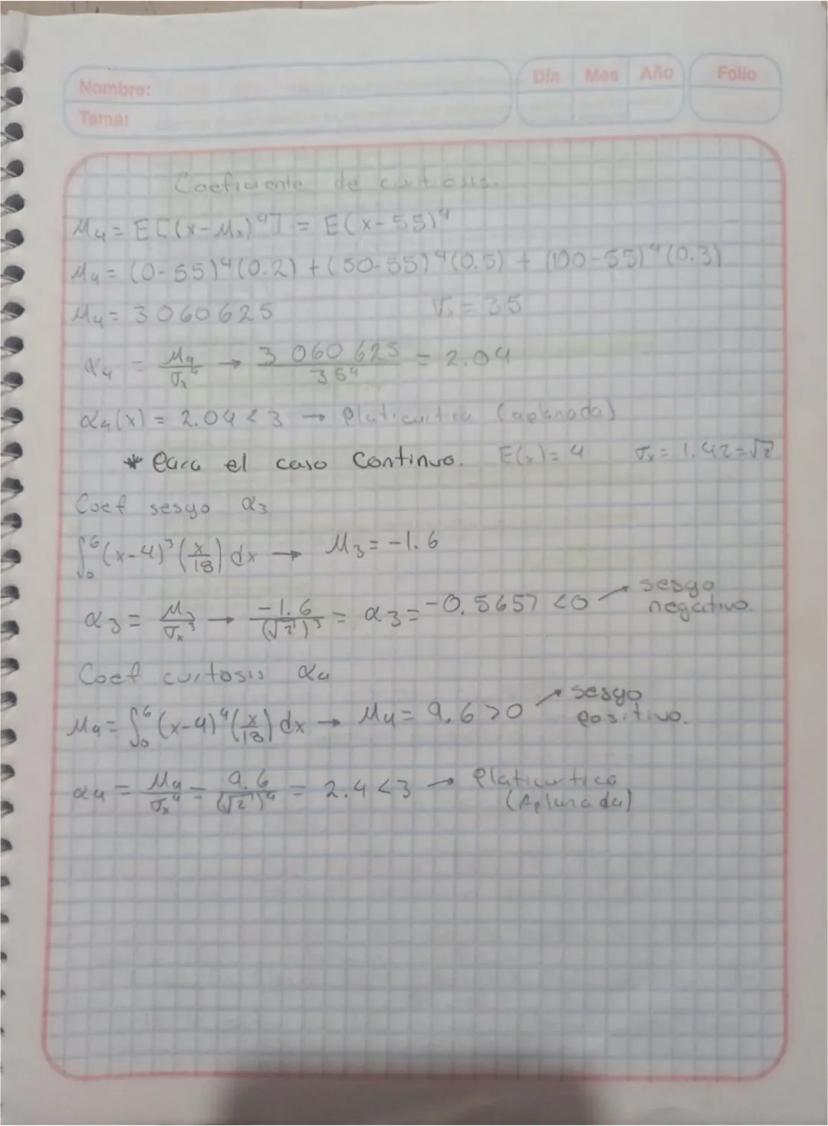 Nombre:
Tema:
Día Mes Año Folio
Coeficiente de curtosis.
M₄ = E[(x-Mₓ)⁴] = E(x-55)⁴
M₄ = (0-55)⁴(0.2) + (50-55)⁴(0.5) + (100-55)⁴(0.3)
M₄ = 3060625 σₓ = 35
α₄ = M₄/σₓ⁴ → 3 060 625/35⁴ = 2.04
α₄(x) = 2.04 < 3 → platicurtica (aplanada)
* Para el caso Continuo. E(x) = 4 σₓ = 1.42 = √2
Coef sesgo α₃
∫₀⁶ (x-4)³ (x/18) dx → M₃ = -1.6
α₃ = M₃/σₓ³ → -1.6/(√2)³ = α₃ = -0.5657 < 0 → sesgo
negativo.
Coef curtosis α₄
M₄ = ∫₀⁶ (x-4)⁴ (x/18) dx → M₄ = 9.6 > 0 → sesgo
positivo.
α₄ = M₄/σₓ⁴ = 9.6/(√2)⁴ = 2.4 < 3 → Platicurtico
(Aplanada)